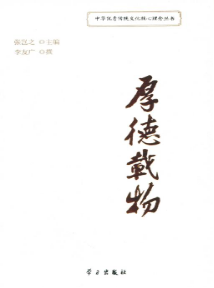 中华优秀传统文化核心理念丛书
张岂之 ◎ 主编
李友广 ◎ 撰
厚德載物
学习出版社